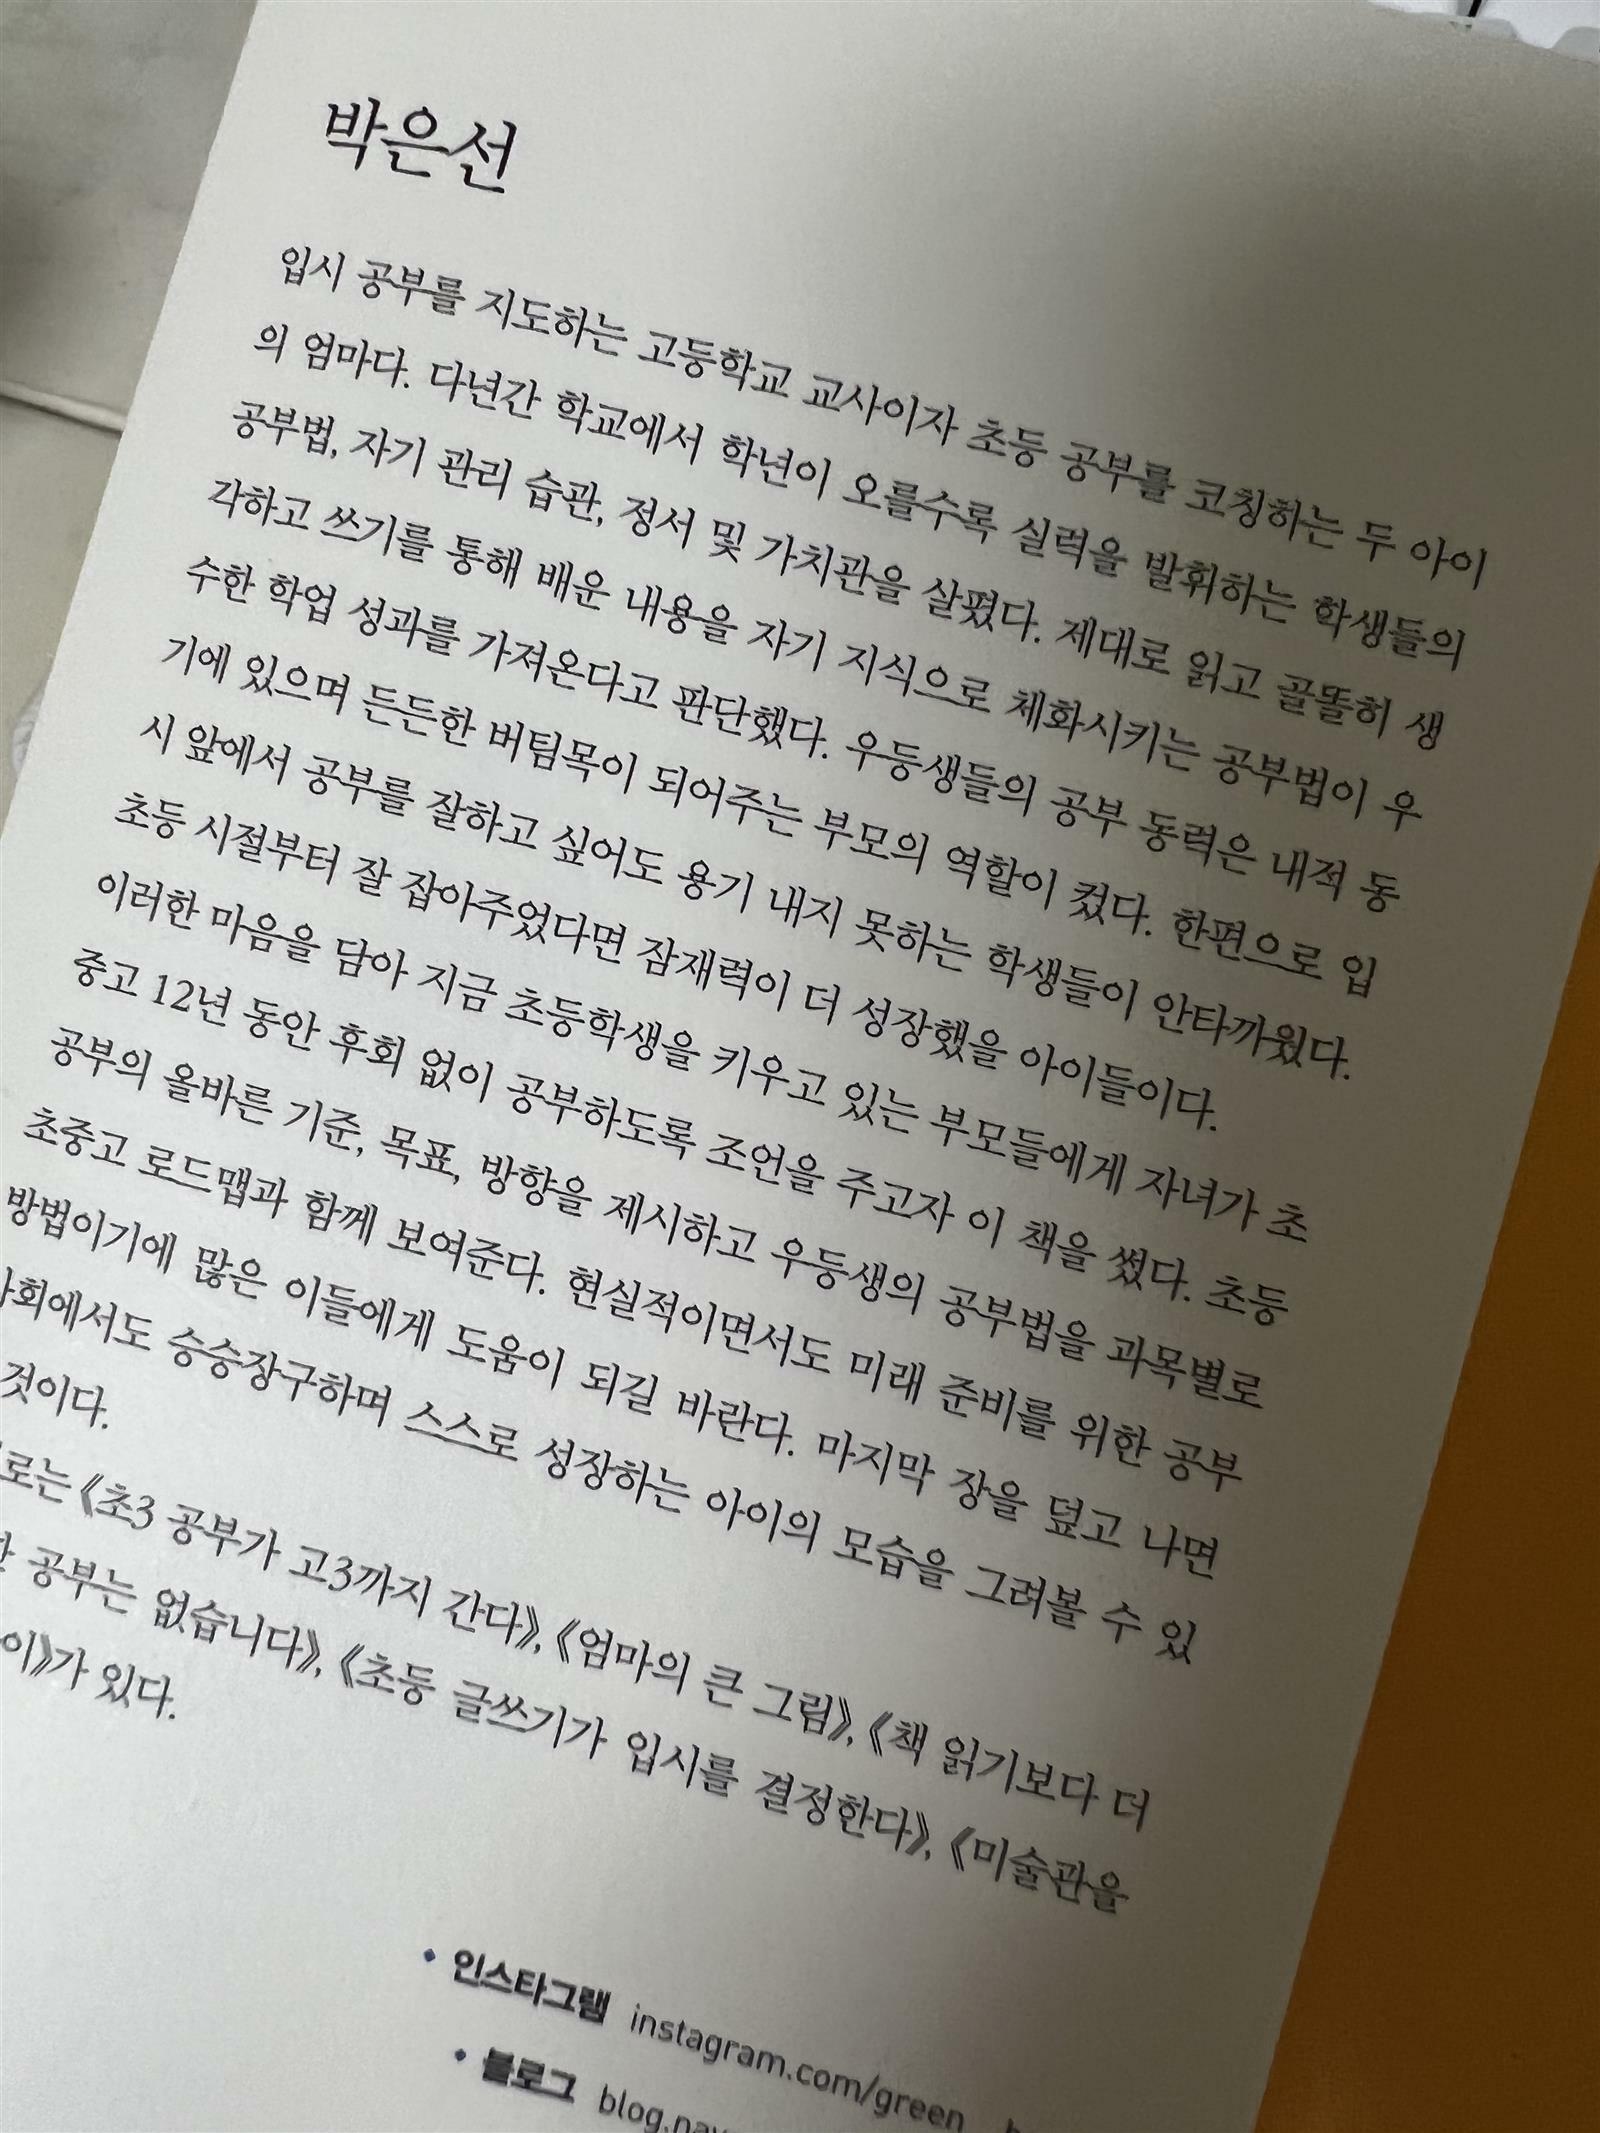 박은선
입시 공부를 지도하는 고등학교 교사이자 초등 공부를 코칭하는 두 아이
의 엄마다. 다년간 학교에서 학년이 오를수록 실력을 발휘하는 학생들의
공부법, 자기 관리 습관, 정서 및 가치관을 살폈다. 제대로 읽고 골똘히 생
각하고 쓰기를 통해 배운 내용을 자기 지식으로 체화시키는 공부법이 우
수한 학업 성과를 가져온다고 판단했다. 우등생들의 공부 동력은 내적 동
기에 있으며 든든한 버팀목이 되어주는 부모의 역할이 컸다. 한편으로 입
시 앞에서 공부를 잘하고 싶어도 용기 내지 못하는 학생들이 안타까웠다.
초등 시절부터 잘 잡아주었다면 잠재력이 더 성장했을 아이들이다.
이러한 마음을 담아 지금 초등학생을 키우고 있는 부모들에게 자녀가 초
중고 12년 동안 후회 없이 공부하도록 조언을 주고자 이 책을 썼다. 초등
공부의 올바른 기준, 목표, 방향을 제시하고 우등생의 공부법을 과목별로
초중고 로드맵과 함께 보여준다. 현실적이면서도 미래 준비를 위한 공부
방법이기에 많은 이들에게 도움이 되길 바란다. 마지막 장을 덮고 나면
사회에서도 승승장구하며 스스로 성장하는 아이의 모습을 그려볼 수 있
것이다.
로는 《초3 공부가 고3까지 간다》, 《엄마의 큰 그림》, 《책 읽기보다 더
공부는 없습니다》, 《초등 글쓰기가 입시를 결정한다》, 《미술관을
이》가 있다.
• 인스타그램 instagram.com/green
• 블로그 blog.nav